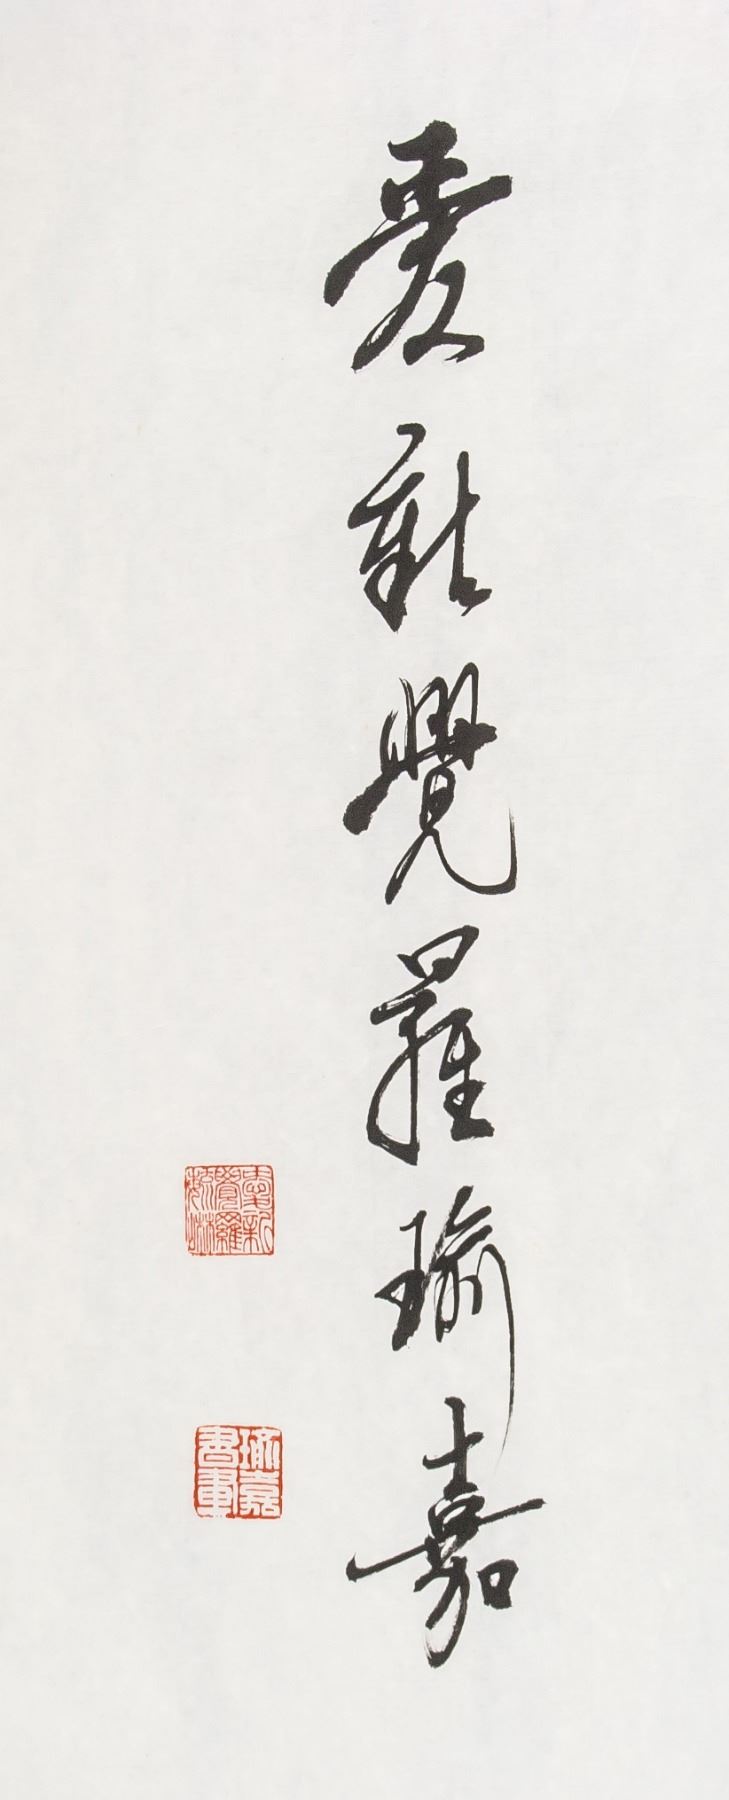 愛新覺羅瑜嘉
愛新覺羅
瑜嘉書畫